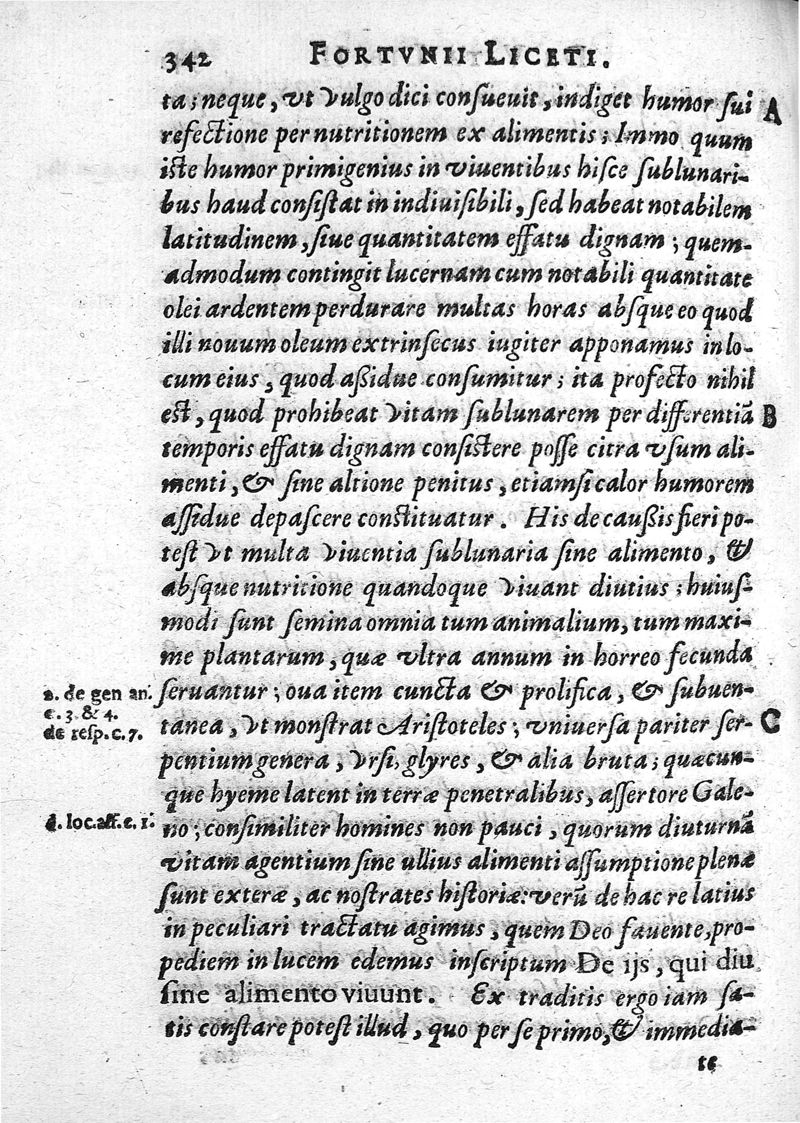 342 FORTVNII LICETI.
ta; neque, vt vulgo dici consueuit, indiget humor sui A
refectione per nutritionem ex alimentis; Immo quum
iste humor primigenius in viuentibus hisce sublunari-
bus haud consistat in indiuisibili, sed habeat notabilem
latitudinem, siue quantitatem effatu dignam; quem-
admodum contingit lucernam cum notabili quantitate
olei ardentem perdurare multas horas absque eo quod
illi nouum oleum extrinsecus iugiter apponamus in lo-
cum eius, quod aßidue consumitur; ita profecto nihil
est, quod prohibeat vitam sublunarem per differentiā B
temporis effatu dignam consistere posse citra vsum ali-
menti, & sine altione penitus, etiamsi calor humorem
assidue depascere constituatur. His de caußis fieri po-
test vt multa viuentia sublunaria sine alimento, &
absque nutritione quandoque viuant diutius; huius-
modi sunt semina omnia tum animalium, tum maxi-
me plantarum, quæ vltra annum in horreo fecunda
a. de gen an. seruantur; oua item cuncta & prolifica, & subuen-
c. 3 & 4.
de resp. c. 7. tanea, vt monstrat Aristoteles; vniuersa pariter ser- C
pentium genera, vrsi, glyres, & alia bruta; quæcun-
que hyeme latent in terræ penetralibus, assertore Gale-
d. loc. aff. c. 1. no; consimiliter homines non pauci, quorum diuturnā
vitam agentium sine ullius alimenti assumptione plenæ
sunt exteræ, ac nostrates historiæ: verū de hac re latius
in peculiari tractatu agimus, quem Deo fauente, pro-
pediem in lucem edemus inscriptum De ijs, qui diu
sine alimento viuunt. Ex traditis ergo iam sa-
tis constare potest illud, quo per se primo, & immedia-
te